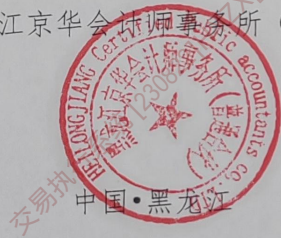 江京华会计师事务所（
HEILONGJIANG Certified Public accountants co.
黑龙江京华会计师事务所（普通合伙）
中国•黑龙江
交易执